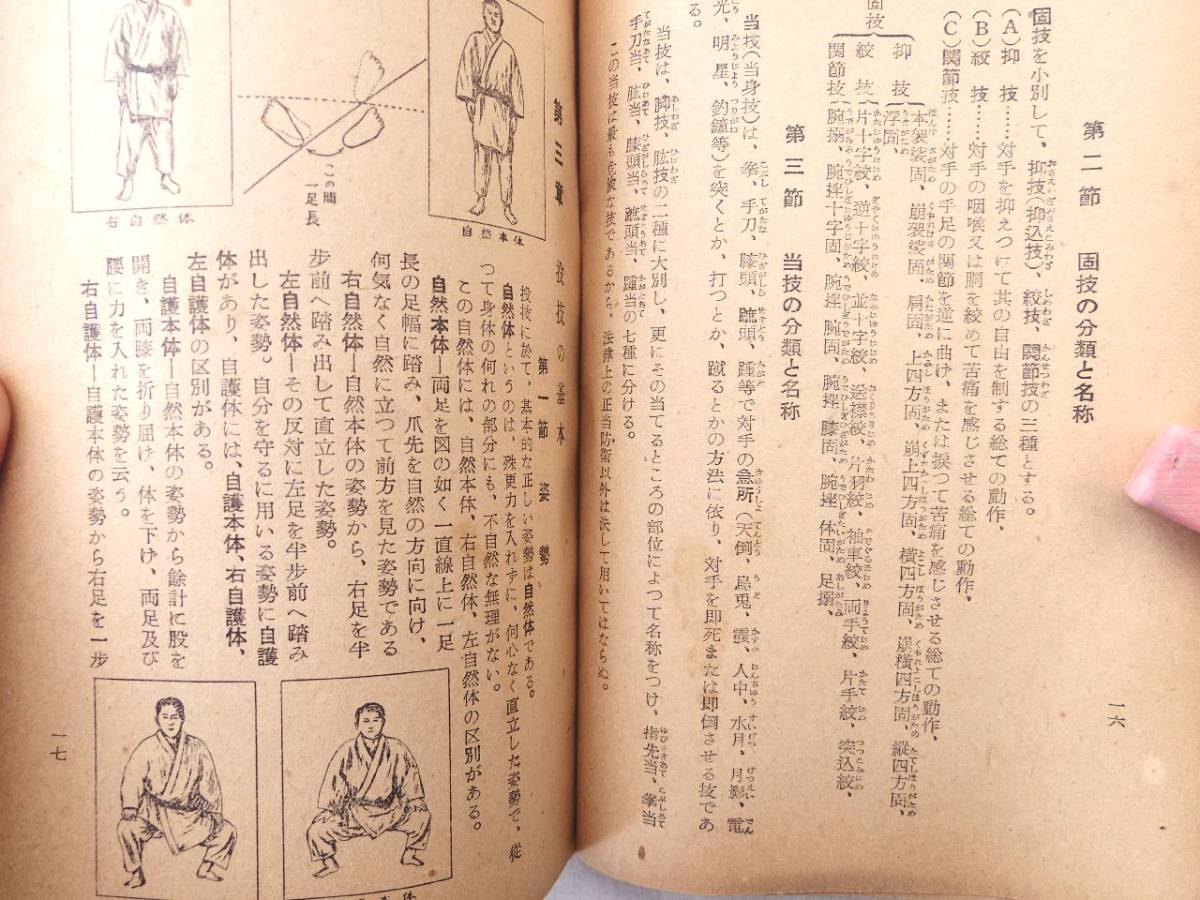 第二節　固技の分類と名称
固技を小別して、抑技(抑込技)、絞技、関節技の三種とする。
(A)抑　技……対手を抑えつけて其の自由を制する総ての動作、
(B)絞　技……対手の咽喉又は胴を絞めて苦痛を感じさせる総ての動作、
(C)関節技……対手の手足の関節を逆に曲げ、または捩つて苦痛を感じさせる総ての動作、
固技
抑　技
本袈裟固、崩袈裟固、肩固、上四方固、崩上四方固、横四方固、崩横四方固、縦四方固、
浮固、
絞　技
片十字絞、逆十字絞、並十字絞、送襟絞、片羽絞、袖車絞、両手絞、片手絞、突込絞、
関節技
腕挫十字固、腕挫腕固、腕挫膝固、腕挫体固、足搦、
第三節　当技の分類と名称
当技(当身技)は、拳、手刀、膝頭、蹠頭、踵等で対手の急所(天倒、烏兎、霞、人中、水月、月影、電
光、明星、釣鐘等)を突くとか、打つとか、蹴るとかの方法に依り、対手を即死または即倒させる技であ
る。
当技は、脚技、肱技の二種に大別し、更にその当てるところの部位によつて名称をつけ、指先当、拳当
手刀当、肱当、膝頭当、蹠頭当、踵当の七種に分ける。
この当技は最も危険な技であるから、法律上の正当防衛以外は決して用いてはならぬ。
一六
第三章　投技の基本
第一節　姿勢
投技に於て、基本的な正しい姿勢は自然体である。
自然体というのは、殊更力を入れずに、何心なく直立した姿勢で、從
つて身体の何れの部分にも、不自然な無理がない。
この自然体には、自然本体、右自然体、左自然体の区別がある。
自然本体―両足を図の如く一直線上に一足
長の足幅に踏み、爪先を自然の方向に向け、
何気なく自然に立つて前方を見た姿勢である
右自然体―自然本体の姿勢から、右足を半
歩前へ踏み出して直立した姿勢。
左自然体―その反対に左足を半歩前へ踏み
出した姿勢。自分を守るに用いる姿勢に自護
体があり、自護体には、自護本体、右自護体、
左自護体の区別がある。
自護本体―自然本体の姿勢から餘計に股を
開き、両膝を折り屈げ、体を下げ、両足及び
腰に力を入れた姿勢を云う。
右自護体―自護本体の姿勢から右足を一歩
自然本体
この間
一足長
右自然体
本体
一七